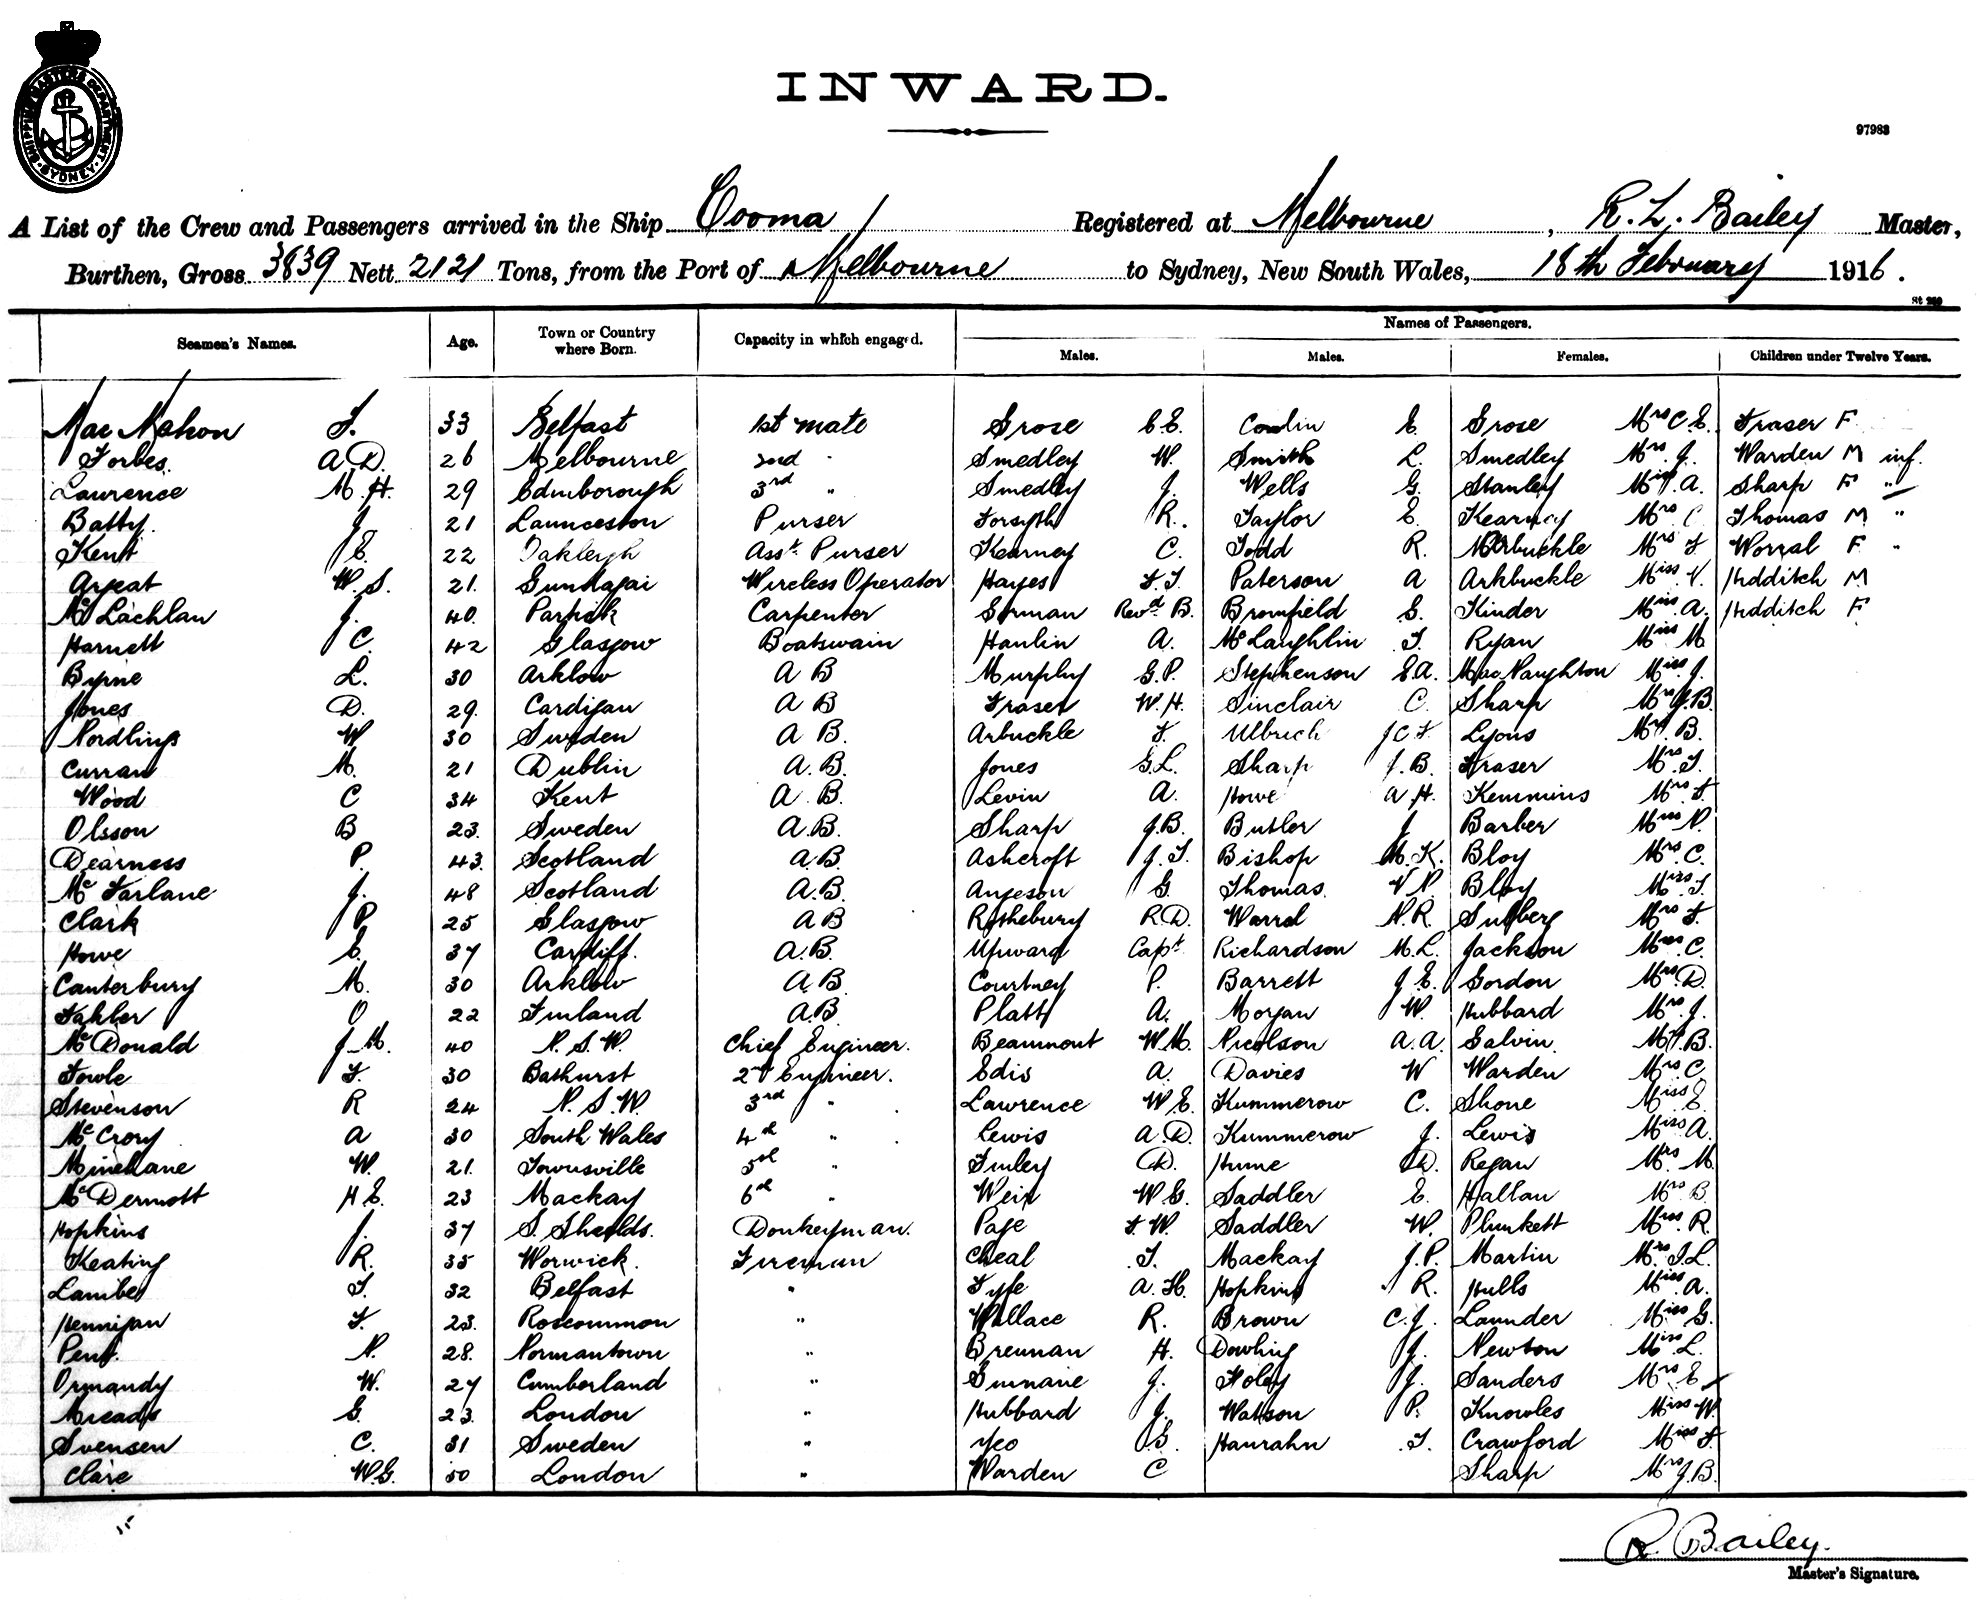 SHIPPING MASTERS DEPARTMENT SYDNEY
INWARD.
97983
A List of the Crew and Passengers arrived in the Ship Cooma Registered at Melbourne, R. L. Bailey Master,
Burthen, Gross 3839 Nett 2121 Tons, from the Port of Melbourne to Sydney, New South Wales, 18th February 1916.
Names of Passengers.
Seamen's Names. Age. Town or Country where Born. Capacity in which engaged. Males. Males. Females. Children under Twelve Years.
Mac Mahon F. 33 Belfast 1st mate Grose C.E. Conlin E. Grose Mrs C E. Fraser F
Forbes. A D. 26 Melbourne 2nd " Smedley W. Smith L. Smedley Mrs J. Warden M inf.
Lawrence M. H. 29 Edinborough 3rd " Smedley J. Wells G. Stanley Miss A. Sharp F "
Batty. J 21 Launceston Purser Forsyth R. Taylor E. Kearney Mrs C Thomas M "
Kent J E. 22 Oakleigh Asst. Purser Kearney C. Todd R. Arbuckle Mrs F Worral F "
W. S. 21. Gundagai Wireless Operator Hayes F. J. Paterson A Arkbuckle Miss V. Hidditch M
Mc Lachlan J. 40. Partick Carpenter Gorman Revd. B. Bromfield G. Kinder Miss A. Hidditch F
Harnett C. 42 Glasgow Boatswain Hanlin A. Mc Laughlin T. Ryan Miss M
Byrne L. 30 Arklow A B Murphy G.P. Stephenson E.A. Mac Naughton Miss J.
Jones D. 29. Cardigan A B Fraser W.H. Sinclair C. Sharp Mrs J.B.
Nordling W 30 Sweden A B. Arbuckle F. Ulbrich J C F. Lyons Mrs. B.
Curran M. 21 Dublin A. B. Jones G.L. Sharp J. B. Fraser Mrs. T.
Wood C 34 Kent A. B. Levin A. Howe A H. Kemmins Mrs. F
Olsson B 23. Sweden A.B. Sharp J.B. Butler J Barber Miss N.
Dearness P. 43. Scotland A.B. Ashcroft J. T. Bishop M.K. Bloy Mrs. C.
Mc Farlane J. 48 Scotland A.B. Anjeson G. Thomas. V N. Bloy Miss. T.
Clark P. 25 Glasgow A B Rothebury R.D. Warral N.R. Sulberg Mrs F
Howe E. 37 Cardiff. A.B. Upward Capt. Richardson M.L. Jackson Mrs. C.
Canterbury M. 30 Arklow A.B. Courtney P. Barrett J E. Gordon Mrs. D.
Fahler O 22 Finland A.B. Platt A. Morgan W. Hubbard Mrs. J.
Mc Donald J. M. 40 N. S. W. Chief Engineer. Beaumont W.M. Nicolson A.A. Galvin. Mrs. B.
Fowle F. 30 Bathurst 2nd Engineer. Edis A. Davies W Warden Mrs C.
Stevenson R 24 N. S. W. 3rd " Lawrence W.E. Kummerow C. Shone Miss E.
Mc Crory A 30 South Wales 4th " Lewis A.D. Kummerow J. Lewis Miss A.
Minehane W. 21. Townsville 5th " Finley D. Hume D. Regan Mrs. M.
Mc Dermott H E. 23 Mackay 6th " Weir W.G. Saddler E. Hallan Mrs B.
Hopkins J. 37 S. Shields. Donkeyman. Page F W. Saddler W. Plunkett Miss. R.
Keating R. 35 Worwick. Fireman Cheal T. Mackay J.P. Martin Mrs. J.L.
Lambe T. 32 Belfast " Fyfe A. H. Hopkins R. Hulls Miss A.
Hennigan F. 23. Roscommon " Wallace R. Brown C.J. Launder Miss G.
Pent. N. 28. Normantown " Brennan H. Dowling J. Newton Miss L.
Ormandy W. 27 Cumberland " Guinane J. Foley J. Sanders Mrs E
Meads G. 23. London " Hubbard J. Watson P. Knowles Miss W.
Svensen C. 31 Sweden " Yeo G. Hanrahn T. Crawford Miss F.
Clare W.G. 50 London " Warden C Sharp Mrs J.B.
R. Bailey.
Master's Signature.